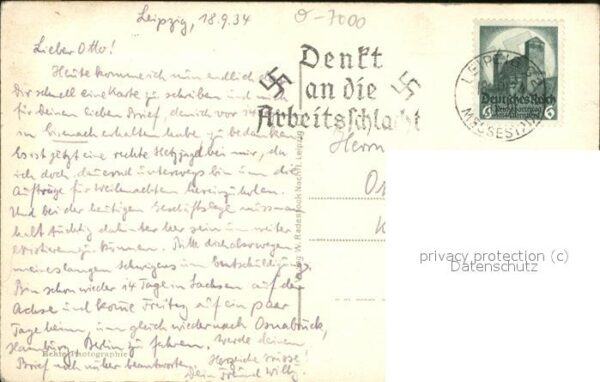 Leipzig, 18.9.34
Lieber Otto!
Heute komme ich nun endlich
Dir schnell eine Karte zu schreiben und
für Deinen lieben Brief, den ich vor
in Eisenach erhalten habe zu bedanken
Es ist jetzt eine rechte Hetzjagd bei mir, da
ich doch dauernd unterwegs bin um die
Aufträge für Weihnachten hereinzuholen.
Und bei der heutigen Geschäftslage muss man
halt tüchtig dahinter her sein um weiter
existieren zu können. Bitte dich deswegen
meines langen Schweigens um Entschuldigung.
Bin schon wieder 14 Tage in Sachsen auf der
Achse und komme Freitag auf ein paar
Tage heim, um gleich wieder nach Osnabrück,
Hamburg, Berlin zu fahren. Werde deinen
Brief noch näher beantworten.
Herzliche Grüsse!
Dein Freund Willy.
Echte Photographie
Verlag W. Radestock Nachfl. Leipzig
Denkt
an die
Arbeitsschlacht
LEIPZIG
MESSESTADT
Deutsches Reich
6 6
Herrn
privacy protection (c)
Datenschutz